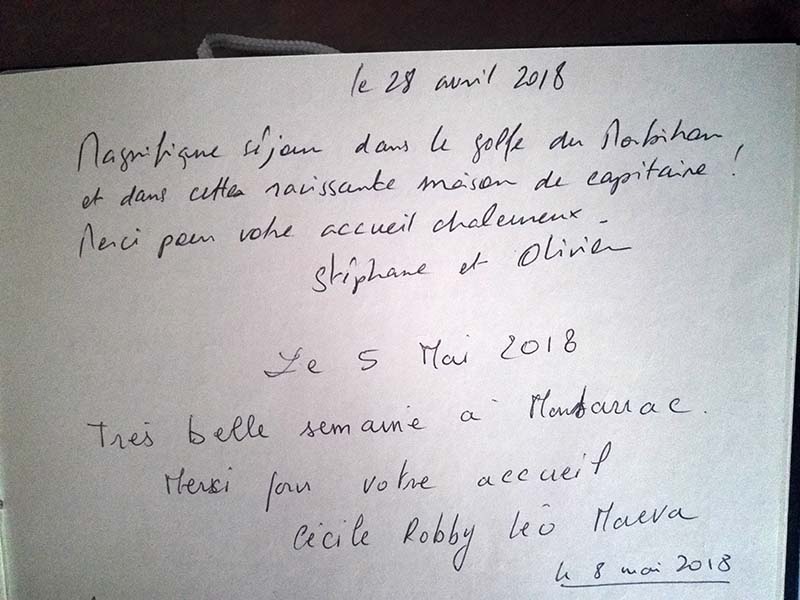 le 28 avril 2018
Magnifique séjour dans le golfe du Morbihan
et dans cette ravissante maison de capitaine !
Merci pour votre accueil chaleureux.
Stéphane et Olivier
Le 5 Mai 2018
Très belle semaine à Montsarrac.
Merci pour votre accueil
Cécile Robby Léo Maeva
le 8 mai 2018